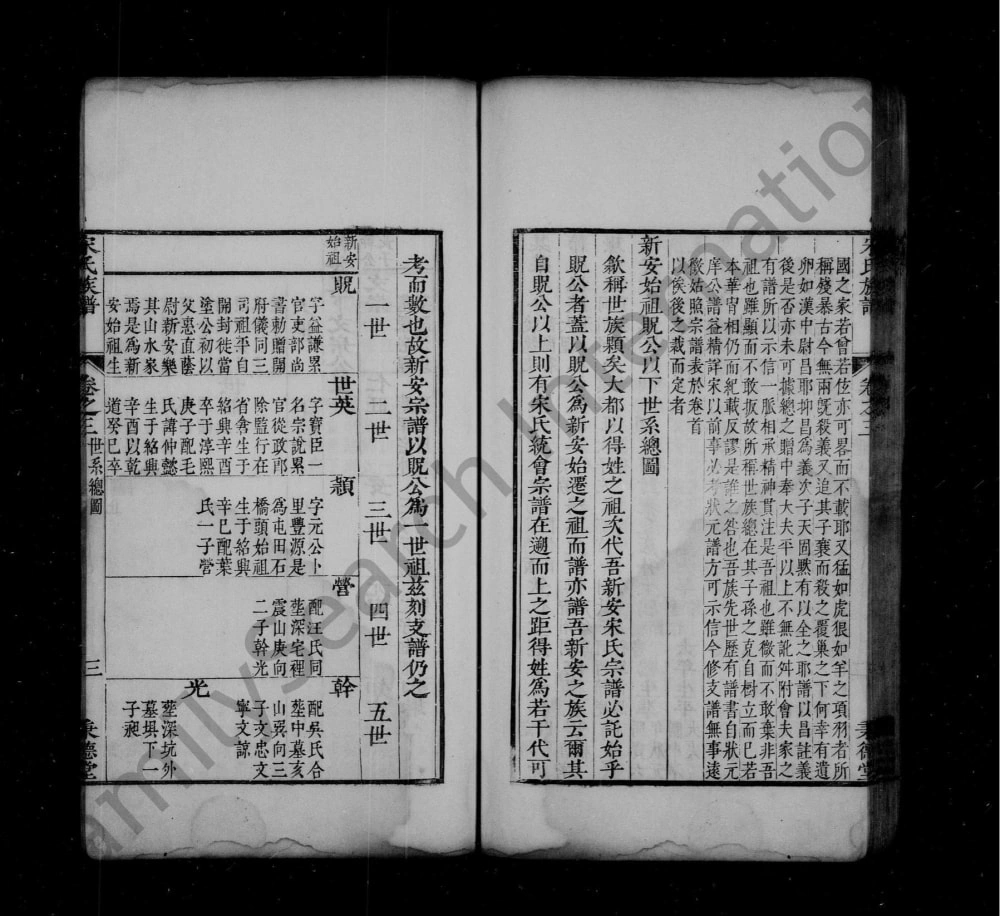 宋氏族譜 卷之三 秉德堂
國之家若曾若佐亦可畧而不載耶又猛如虎狠如羊之項羽者所
稱殘暴古今無兩旣殺義又追其子襄而殺之覆巢之下何幸有遺
卵如漢中尉昌耶抑昌爲義次子天固默有以全之耶譜以昌註義
後是否亦未可據總之贈中奉大夫平以上不無訛舛附會夫家之
有譜所以示信一脈相承精神貫注是吾祖也雖微而不敢棄非吾
祖也雖顯而不敢扳故所稱世族總在其子孫之克自樹立而已若
本華胄相仍而紀載反謬是誰之咎也吾族先世歷有譜書自狀元
庠公譜益精詳宋以前事必考狀元譜方可示信今修支譜無事遠
徵姑照宗譜表於卷首
以俟後之裁而定者
新安始祖貺公以下世系總圖
歙稱世族顆矣大都以得姓之祖次代吾新安宋氏宗譜必託始乎
貺公者蓋以貺公爲新安始遷之祖而譜亦譜吾新安之族云爾其
自貺公以上則有宋氏統會宗譜在遡而上之距得姓爲若干代可
考而數也故新安宗譜以貺公爲一世祖茲刻支譜仍之
一世 二世 三世 四世 五世
新安
始祖
貺
字益謙累
官吏部尚
書勅贈開
府儀同三
司祖平自
開封徙當
塗公初以
父惠直蔭
尉新安樂
其山水家
焉是爲新
安始祖生
世英
字寶臣一
名宗說累
官從政郎
除監行在
省倉生于
紹興辛酉
卒于淳熙
庚子配毛
氏諱仲懿
生于紹興
辛酉以乾
道癸巳卒
顥
字元公卜
里豐源是
爲屯田石
橋頭始祖
生于紹興
辛巳配葉
氏一子營
營
配汪氏同
塟深宅裡
震山庚向
二子幹光
幹
配吳氏合
塟中墓亥
山巽向三
子文忠文
寧文諒
光
塟深坑外
墓塤下一
子昶
宋氏族譜 卷之三 世系總圖 三 秉德堂
FamilySearch International